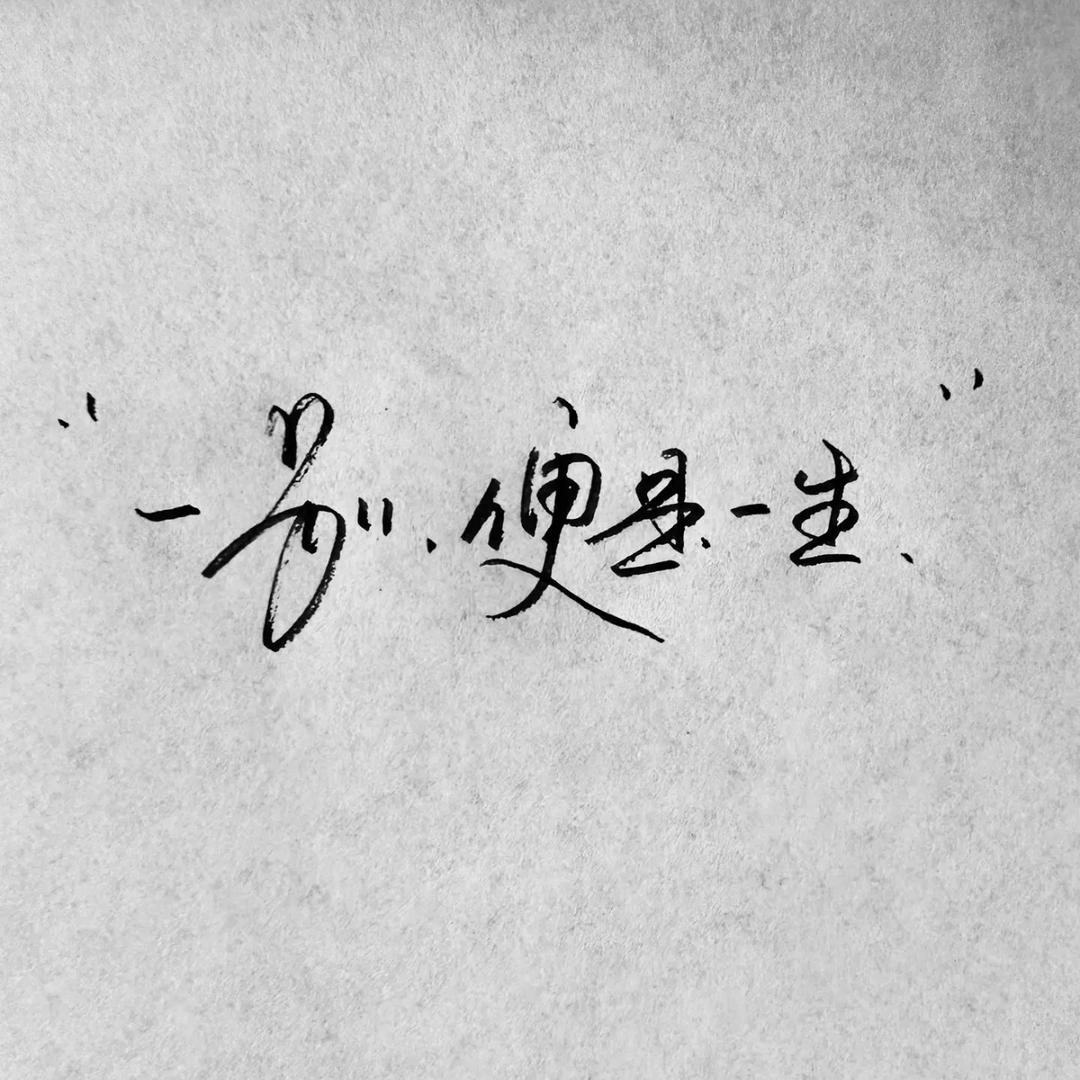 “一别，便是一生.”